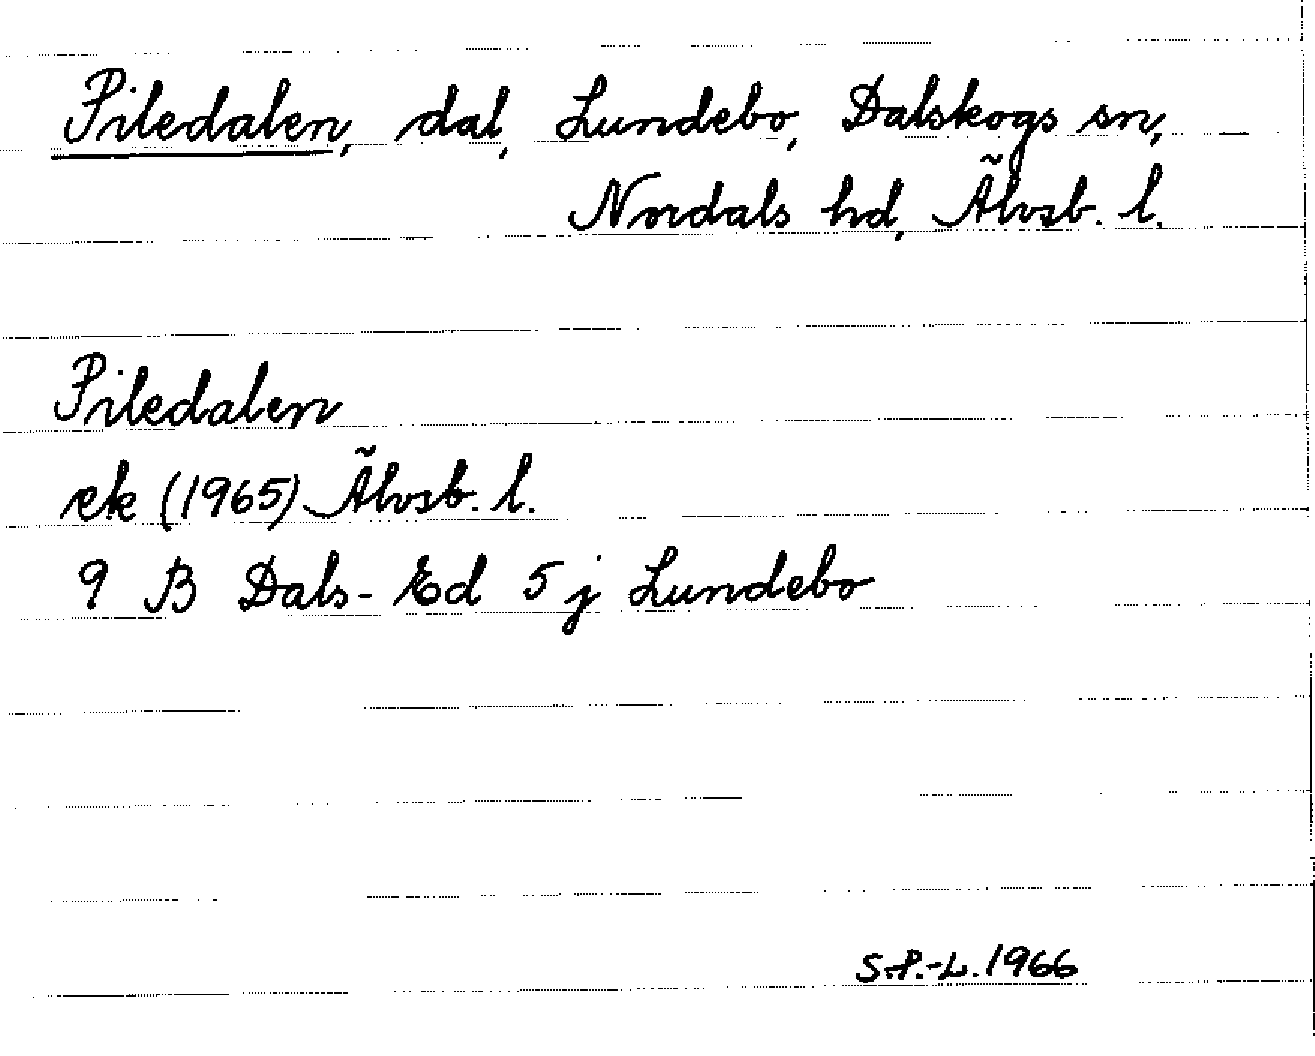 Piledalen, dal, Lundebo, Dalskogs sn,
Nordals hd, Älvsb. l.
Piledalen
ek (1965) Älvsb. l.
9 B Dals-Ed 5 j Lundebo
S.P.-L. 1966